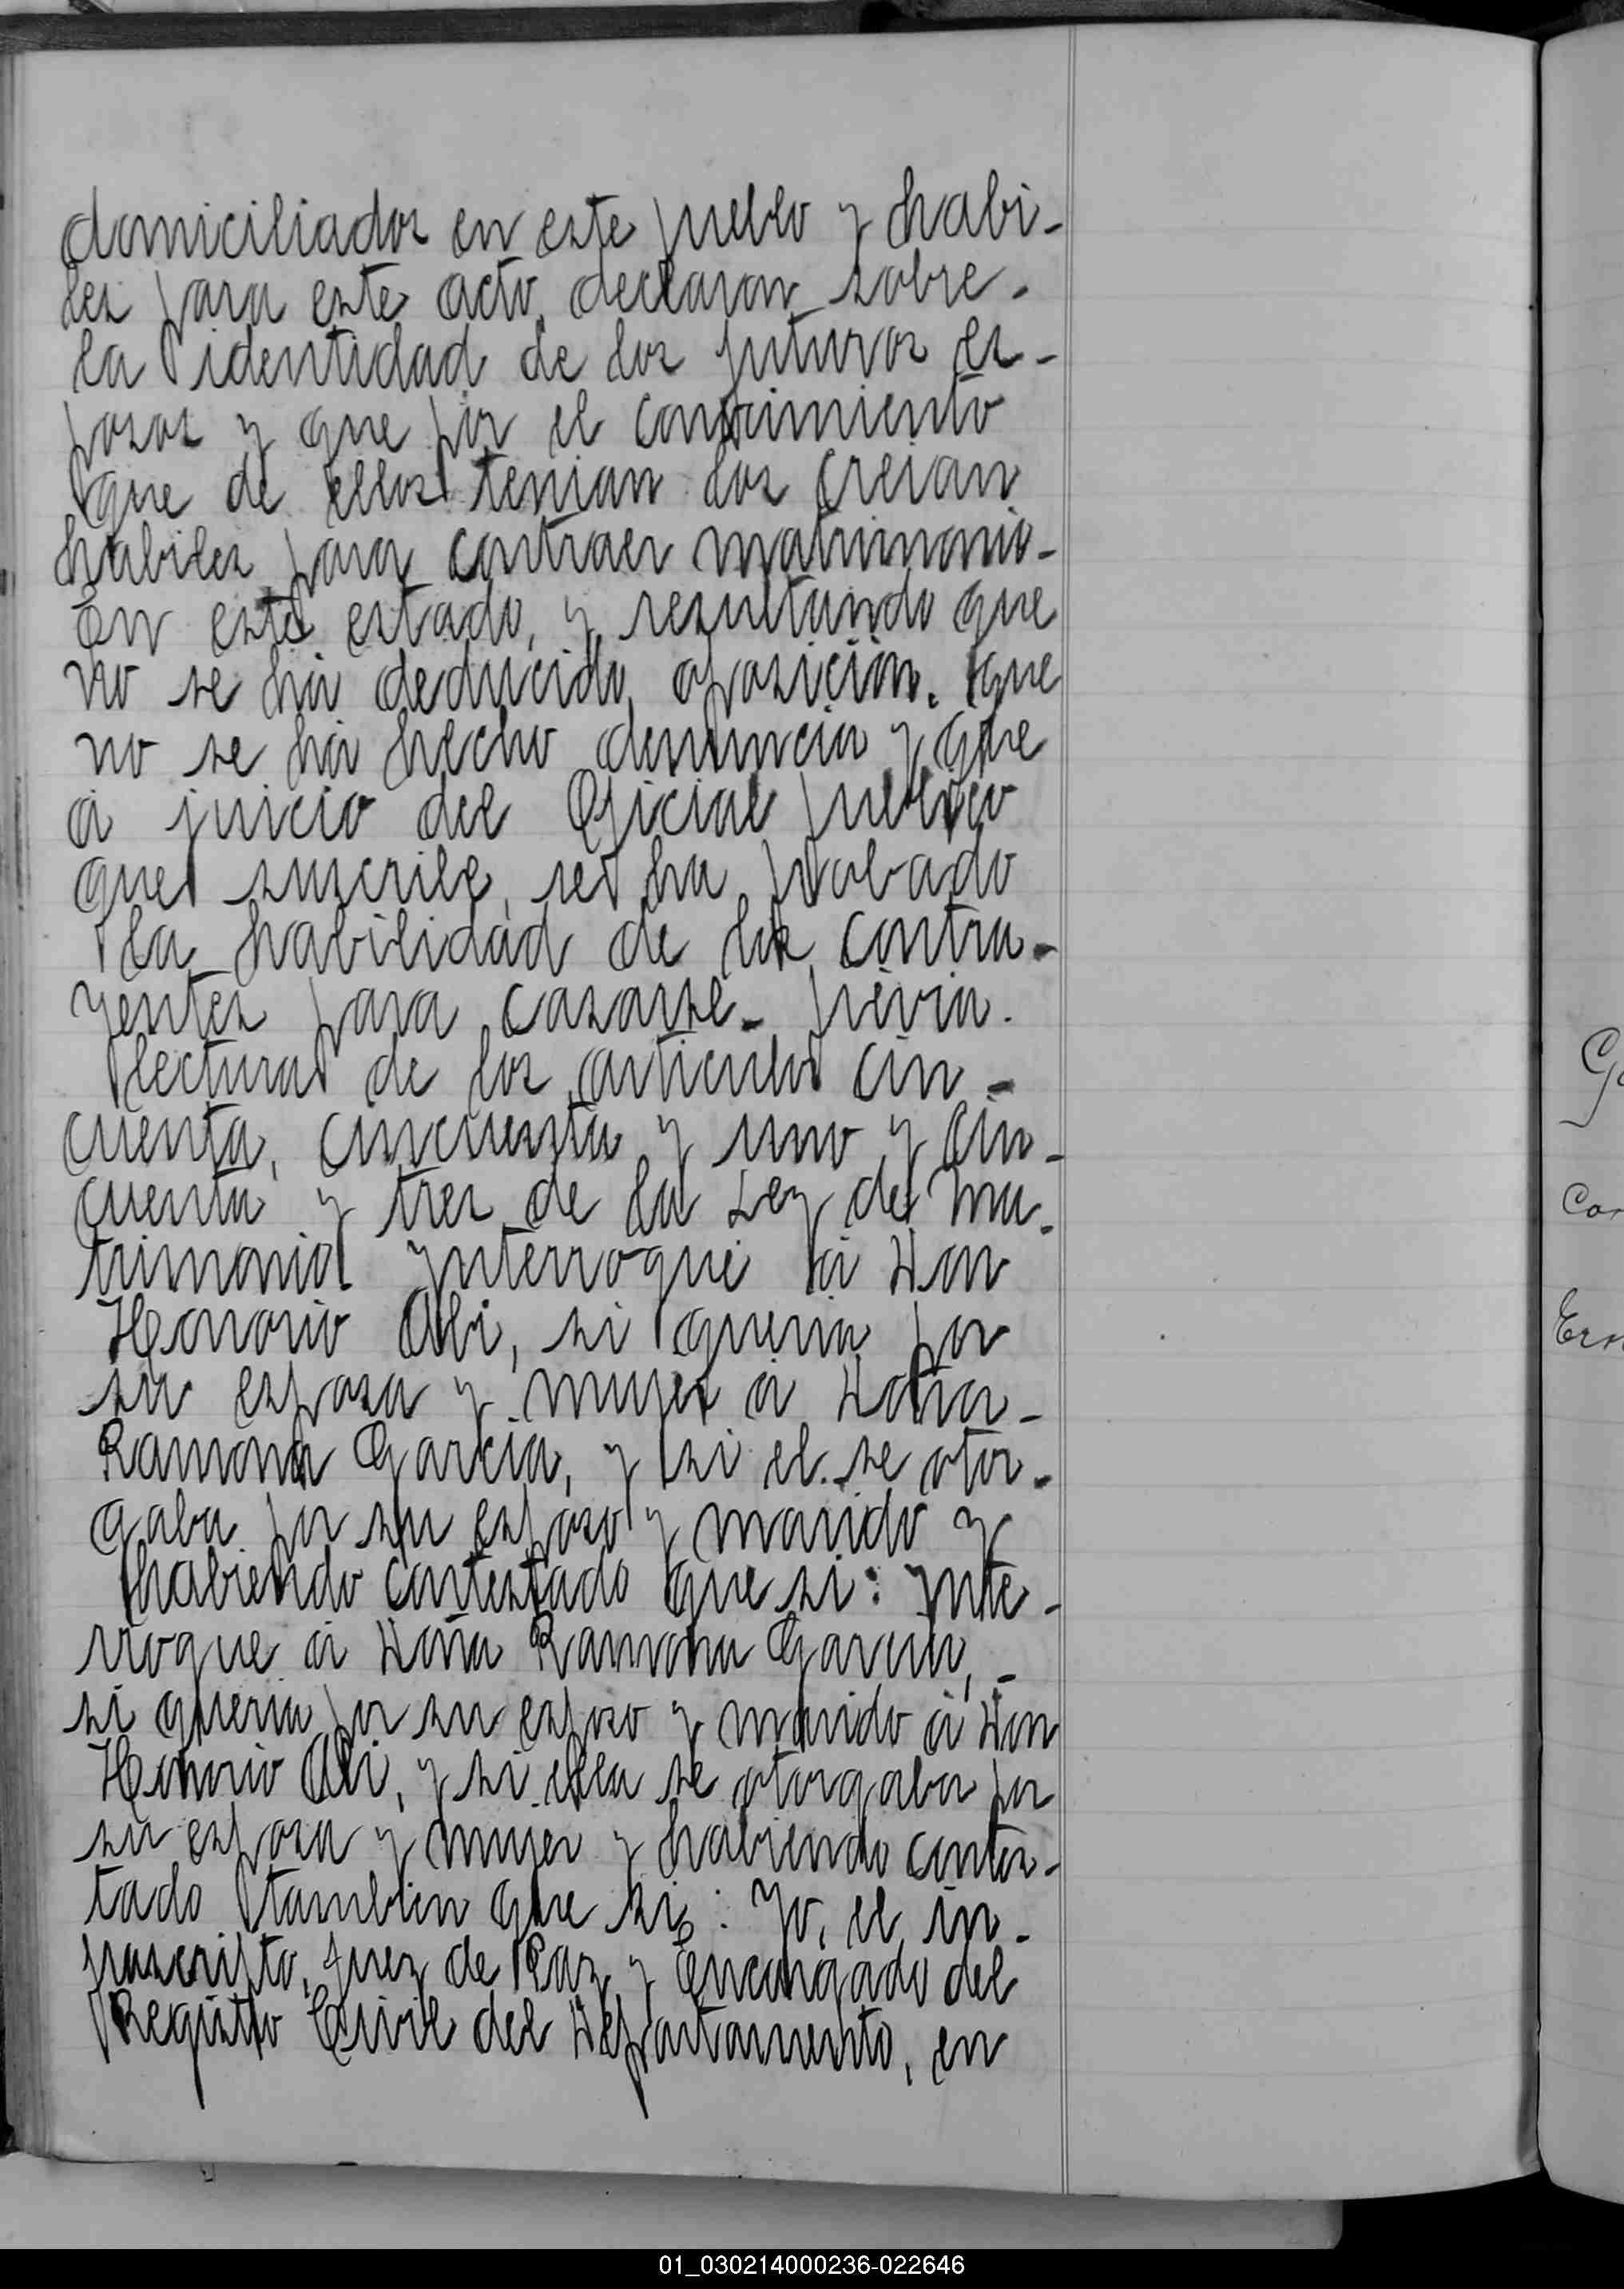 domiciliados en este pueblo y habi-
les para este acto, declaran sobre-
la identidad de los futuros es-
posos y que por el conocimiento
que de ellos tenian los creian
habiles para contraer matrimonio-
En este estado, y resultando que
no se há deducido oposicion, que
no se há hecho denuncia y que
á juicio del Oficial publico
que suscribe, se ha probado
la habilidad de los contra-
yentes para casarse- previa.
lectura de los articulos cin-
cuenta, cincuenta y uno y cin-
cuenta y tres de la Ley de Ma-
trimonio ynterrogué á Don
Honorio Abi, si queria por
su esposa y mujer á Doña-
Ramona Garcia, y si el se otor-
gaba por su esposo y marido y
habiendo contestado que si: ynte-
rrogue á Doña Ramona Garcia,-
si queria por su esposo y marido á Don
Honorio Abi, y si ella se otorgaba por
su esposa y mujer y habiendo contes-
tado tambien que si: Yo, el in-
frascripto, Juez de Paz y Encargado del
Registro Civil del Departamento, en
Co
Ern
01_030214000236-022646